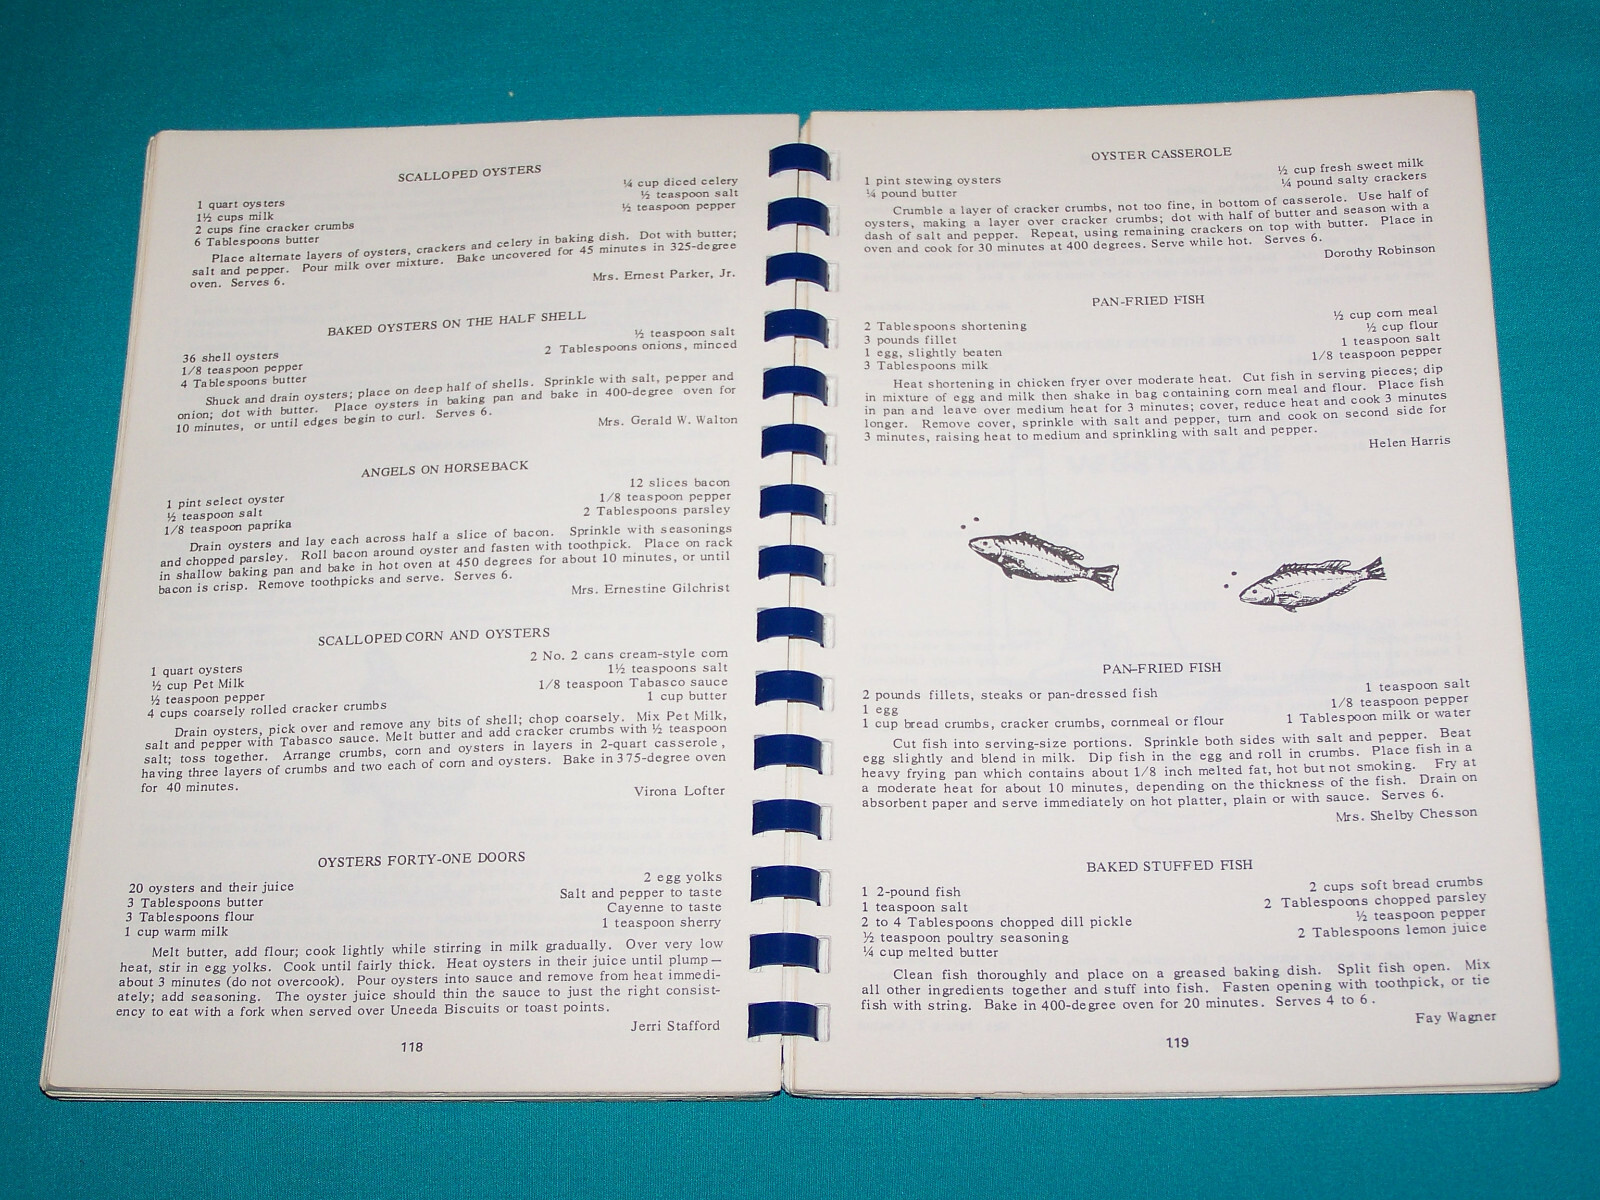 SCALLOPED OYSTERS
1 quart oysters
1½ cups milk
2 cups fine cracker crumbs
6 Tablespoons butter
¼ cup diced celery
½ teaspoon salt
½ teaspoon pepper
Place alternate layers of oysters, crackers and celery in baking dish. Dot with butter;
salt and pepper. Pour milk over mixture. Bake uncovered for 45 minutes in 325-degree
oven. Serves 6.
Mrs. Ernest Parker, Jr.
BAKED OYSTERS ON THE HALF SHELL
36 shell oysters
1/8 teaspoon pepper
4 Tablespoons butter
½ teaspoon salt
2 Tablespoons onions, minced
Shuck and drain oysters; place on deep half of shells. Sprinkle with salt, pepper and
onion; dot with butter. Place oysters in baking pan and bake in 400-degree oven for
10 minutes, or until edges begin to curl. Serves 6.
Mrs. Gerald W. Walton
ANGELS ON HORSEBACK
1 pint select oyster
½ teaspoon salt
1/8 teaspoon paprika
12 slices bacon
1/8 teaspoon pepper
2 Tablespoons parsley
Drain oysters and lay each across half a slice of bacon. Sprinkle with seasonings
and chopped parsley. Roll bacon around oyster and fasten with toothpick. Place on rack
in shallow baking pan and bake in hot oven at 450 degrees for about 10 minutes, or until
bacon is crisp. Remove toothpicks and serve. Serves 6.
Mrs. Ernestine Gilchrist
SCALLOPED CORN AND OYSTERS
1 quart oysters
½ cup Pet Milk
½ teaspoon pepper
4 cups coarsely rolled cracker crumbs
2 No. 2 cans cream-style corn
1½ teaspoons salt
1/8 teaspoon Tabasco sauce
1 cup butter
Drain oysters, pick over and remove any bits of shell; chop coarsely. Mix Pet Milk,
salt and pepper with Tabasco sauce. Melt butter and add cracker crumbs with ½ teaspoon
salt; toss together. Arrange crumbs, corn and oysters in layers in 2-quart casserole,
having three layers of crumbs and two each of corn and oysters. Bake in 375-degree oven
for 40 minutes.
Virona Lofter
OYSTERS FORTY-ONE DOORS
20 oysters and their juice
3 Tablespoons butter
3 Tablespoons flour
1 cup warm milk
2 egg yolks
Salt and pepper to taste
Cayenne to taste
1 teaspoon sherry
Melt butter, add flour; cook lightly while stirring in milk gradually. Over very low
heat, stir in egg yolks. Cook until fairly thick. Heat oysters in their juice until plump—
about 3 minutes (do not overcook). Pour oysters into sauce and remove from heat immedi-
ately; add seasoning. The oyster juice should thin the sauce to just the right consist-
ency to eat with a fork when served over Uneeda Biscuits or toast points.
Jerri Stafford
118
OYSTER CASSEROLE
1 pint stewing oysters
¼ pound butter
½ cup fresh sweet milk
¼ pound salty crackers
Crumble a layer of cracker crumbs, not too fine, in bottom of casserole. Use half of
oysters, making a layer over cracker crumbs; dot with half of butter and season with a
dash of salt and pepper. Repeat, using remaining crackers on top with butter. Place in
oven and cook for 30 minutes at 400 degrees. Serve while hot. Serves 6.
Dorothy Robinson
PAN-FRIED FISH
2 Tablespoons shortening
3 pounds fillet
1 egg, slightly beaten
3 Tablespoons milk
½ cup corn meal
½ cup flour
1 teaspoon salt
1/8 teaspoon pepper
Heat shortening in chicken fryer over moderate heat. Cut fish in serving pieces; dip
in mixture of egg and milk then shake in bag containing corn meal and flour. Place fish
in pan and leave over medium heat for 3 minutes; cover, reduce heat and cook 3 minutes
longer. Remove cover, sprinkle with salt and pepper, turn and cook on second side for
3 minutes, raising heat to medium and sprinkling with salt and pepper.
Helen Harris
PAN-FRIED FISH
2 pounds fillets, steaks or pan-dressed fish
1 egg
1 cup bread crumbs, cracker crumbs, cornmeal or flour
1 teaspoon salt
1/8 teaspoon pepper
1 Tablespoon milk or water
Cut fish into serving-size portions. Sprinkle both sides with salt and pepper. Beat
egg slightly and blend in milk. Dip fish in the egg and roll in crumbs. Place fish in a
heavy frying pan which contains about 1/8 inch melted fat, hot but not smoking. Fry at
a moderate heat for about 10 minutes, depending on the thickness of the fish. Drain on
absorbent paper and serve immediately on hot platter, plain or with sauce. Serves 6.
Mrs. Shelby Chesson
BAKED STUFFED FISH
1 2-pound fish
1 teaspoon salt
2 to 4 Tablespoons chopped dill pickle
½ teaspoon poultry seasoning
¼ cup melted butter
2 cups soft bread crumbs
2 Tablespoons chopped parsley
½ teaspoon pepper
2 Tablespoons lemon juice
Clean fish thoroughly and place on a greased baking dish. Split fish open. Mix
all other ingredients together and stuff into fish. Fasten opening with toothpick, or tie
fish with string. Bake in 400-degree oven for 20 minutes. Serves 4 to 6.
Fay Wagner
119